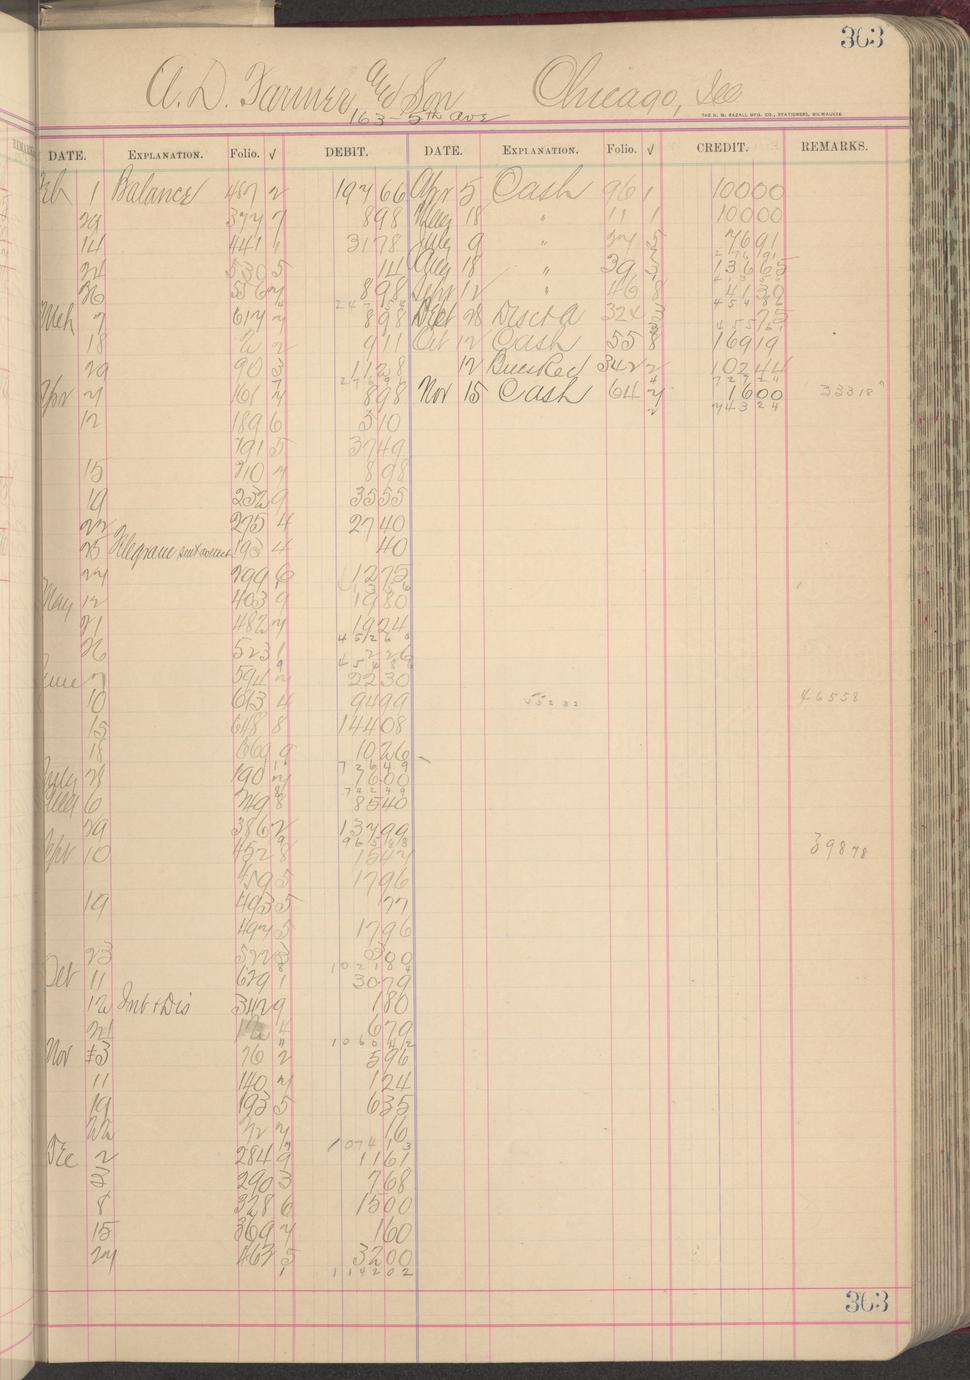 363
A. D. Farmer and Son Chicago, Ill
163 - 5th Ave
THE H. G. RAZALL MFG. CO., STATIONERS, MILWAUKEE
DATE. EXPLANATION. Folio. √ DEBIT. DATE. EXPLANATION. Folio. √ CREDIT. REMARKS.
Feb 1 Balance 487 2 197 66 Apr 5 Cash 96 1 100 00
29 377 7 8 98 May 18 " 11 1 100 00
14 441 1 31 78 July 9 " 27 5 76 91
24 530 5 14 Aug 18 " 39 136 65
26 556 7 8 98 Sept 12 " 46 8 41 30
Mch 7 617 7 8 98 28 324 75
18 2 9 11 Oct 12 Cash 55 8 169 19
29 90 3 11 28 12 Bills Recd 342 2 102 44
Apr 7 161 7 8 98 Nov 15 Cash 64 7 16 00 333 18
743 24
12 189 6 3 10
191 5 37 49
15 210 7 8 98
19 232 9 35 55
22 275 4 27 40
25 Telegram 193 4 40
27 299 6 12 75
May 12 403 9 19 80
21 482 7 19 24
26 523 1 2 26
June 7 594 7 22 30
10 613 4 94 99 465 58
15 648 8 144 08
18 669 9 10 26
July 28 190 7 76 00
742 49
Aug 6 249 8 85 40
29 386 2 137 99
Sept 10 452 8 15 47 398 78
459 5 17 96
19 493 5 77
497 5 17 96
23 522 3 00
Oct 11 629 1 30 79
12 Int & Dis 342 9 1 80
21 4 6 79
Nov 3 76 2 5 96
11 140 7 1 24
19 193 5 6 35
22 7 16
1074 13
Dec 2 284 9 11 61
3 290 3 7 68
8 328 6 15 00
15 369 7 1 60
27 463 5 32 00
1142 02
363